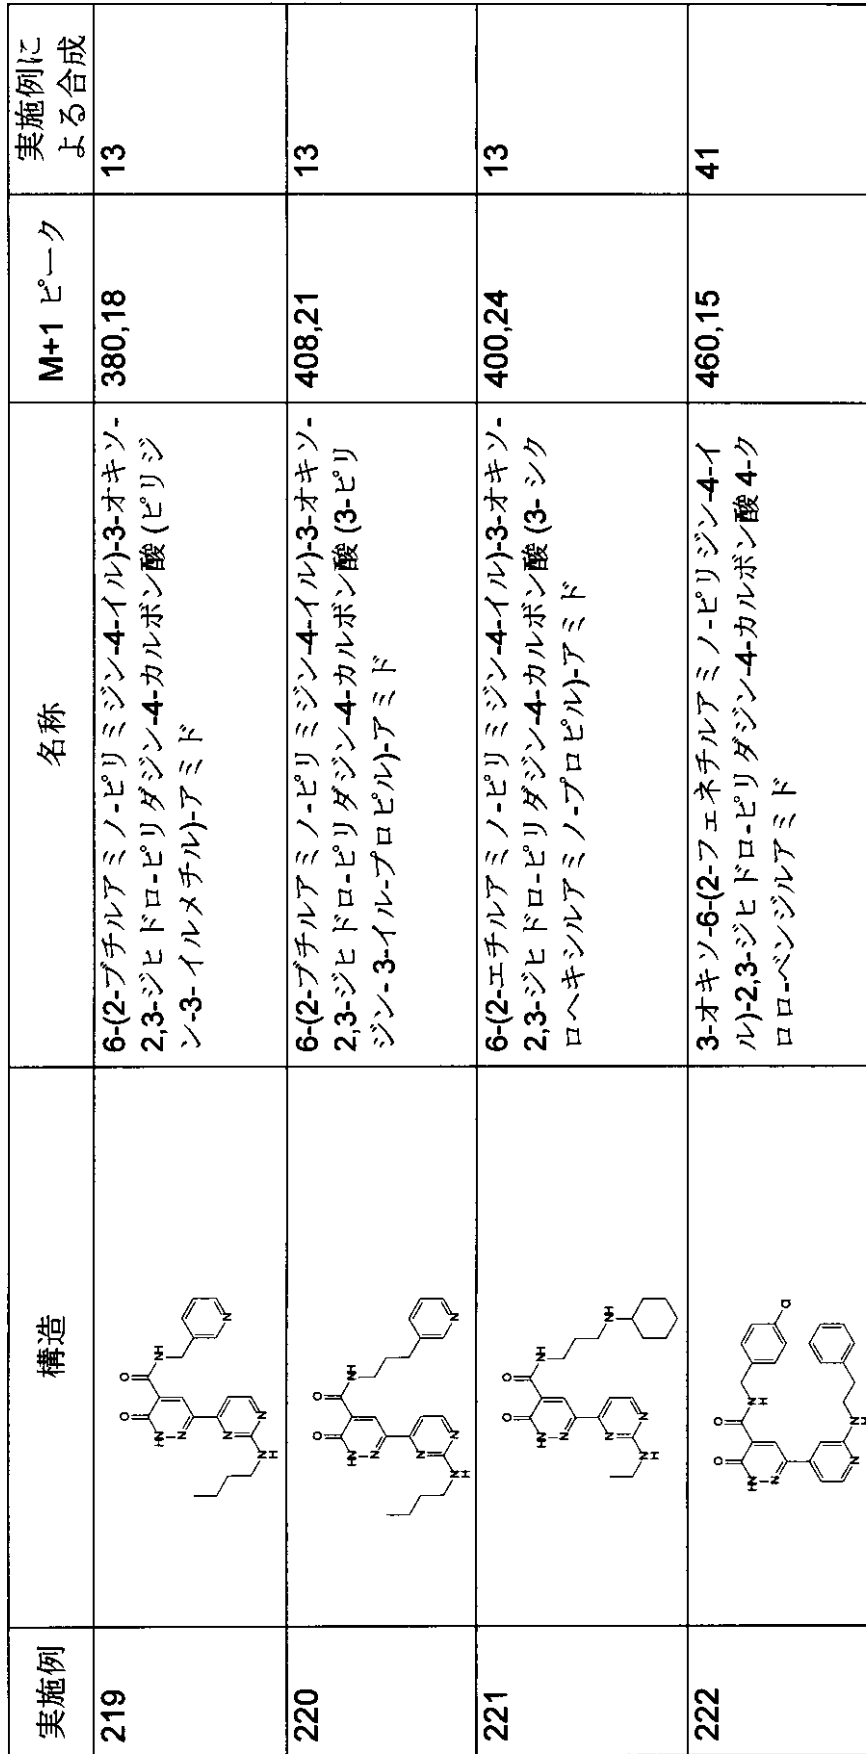 実施例
構造
名称
M+1 ピーク
実施例に
よる合成
219
6-(2-ブチルアミノ-ピリミジン-4-イル)-3-オキソ-
2,3-ジヒドロ-ピリダジン-4-カルボン酸 (ピリジ
ン-3- イルメチル)-アミド
380,18
13
220
6-(2-ブチルアミノ-ピリミジン-4-イル)-3-オキソ-
2,3-ジヒドロ-ピリダジン-4-カルボン酸 (3-ピリ
ジン- 3-イル-プロピル)-アミド
408,21
13
221
6-(2-エチルアミノ-ピリミジン-4-イル)-3-オキソ-
2,3-ジヒドロ-ピリダジン-4-カルボン酸 (3- シク
ロヘキシルアミノ-プロピル)-アミド
400,24
13
222
3-オキソ-6-(2-フェネチルアミノ-ピリジン-4-イ
ル)-2,3-ジヒドロ-ピリダジン-4-カルボン酸 4-ク
ロロ-ベンジルアミド
460,15
41